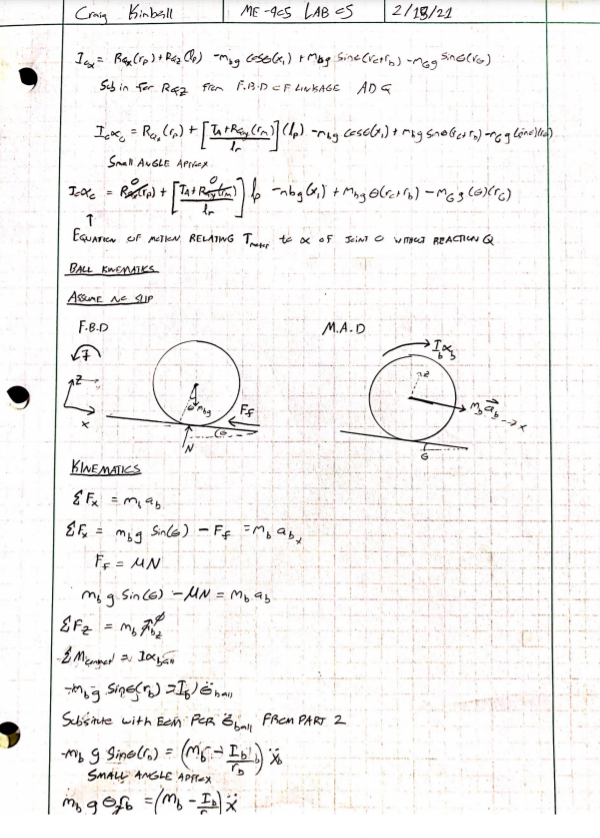 Craig Kimball ME-405 LAB 05 2/18/21
I_c α = R_Qx(r_p) + R_Qz(l_p) - m_b g cosθ(x_1) + m_b g sinθ(r_c+r_b) - m_G g sinθ(r_G)
Sub in for R_Qz from F.B.D OF LINKAGE ADG
I_c α_c = R_Qx(r_p) + [T_A + R_Qy(r_m) / l_r](l_p) - m_b g cosθ(x_1) + m_b g sinθ(r_c+r_b) - m_G g (sinθ)(r_G)
Small ANGLE APPROX
I_c α_c = R_Qx(r_p) 0 + [T_A + R_Qy(r_m) 0 / l_r] l_p - m_b g(x_1) + m_b g θ(r_c+r_b) - m_G g (θ)(r_G)
EQUATION OF MOTION RELATING T_motor to α OF JOINT O WITHOUT REACTION Q
BALL KINEMATICS
ASSUME NO SLIP
F.B.D M.A.D
+
z
x
θ m_b g
F_f
N
θ
I_b α_b
r_b
m_b a_b
x
θ
KINEMATICS
ΣF_x = m_b a_b
ΣF_x = m_b g sin(θ) - F_f = m_b a_b_x
F_f = μN
m_b g sin(θ) - μN = m_b a_b
ΣF_z = m_b a_b_z 0
= Iα_ball
-m_b g sinθ(r_b) = I_b θ̈_ball
Substitute with EOM FOR θ̈_ball FROM PART 2
-m_b g sinθ(r_b) = (m_b - I_b / r_b) ẍ_b
SMALL ANGLE APPROX
m_b g θ r_b = (m_b - I_b) ẍ